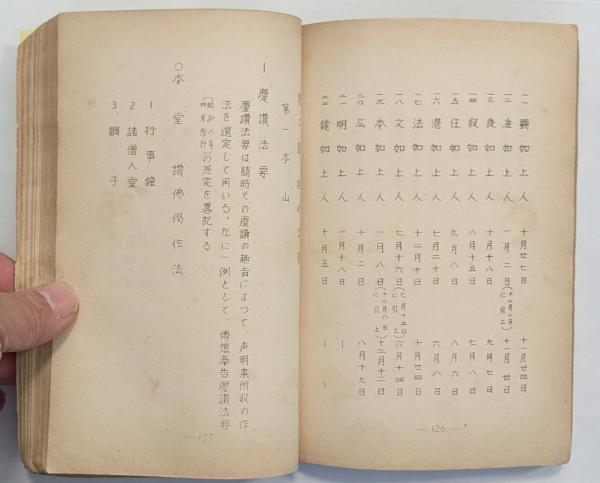 一一 顕如上人 十月廿七日 十一月廿四日
一二 准如上人 一月二日(十二月二日に引上) 十一月廿日
一三 良如上人 十月十八日 九月七日
一四 寂如上人 八月十五日 七月八日
一五 住如上人 九月八日 八月六日
一六 湛如上人 七月二十日 六月八日
一七 法如上人 十二月十日 十月廿四日
一八 文如上人 七月十六日(七月十五日に引上) 六月十四日
一九 本如上人 一月八日(十二月八日に引上) 十二月十二日
二〇 広如上人 十月二日 八月十九日
二一 明如上人 一月十八日 ー
二二 鏡如上人 十月五日 ー
― 126 ―
第一 本山
1 慶讃法要
慶讃法要は随時その慶讃の趣旨によつて、声明集所収の作
法を選定して用いる。左に一例として、傳燈奉告慶讃法要
の差定を畧記する
〇本堂 讃佛偈作法
1 行事鐘
2 諸僧入堂
3、調子
― 127 ―